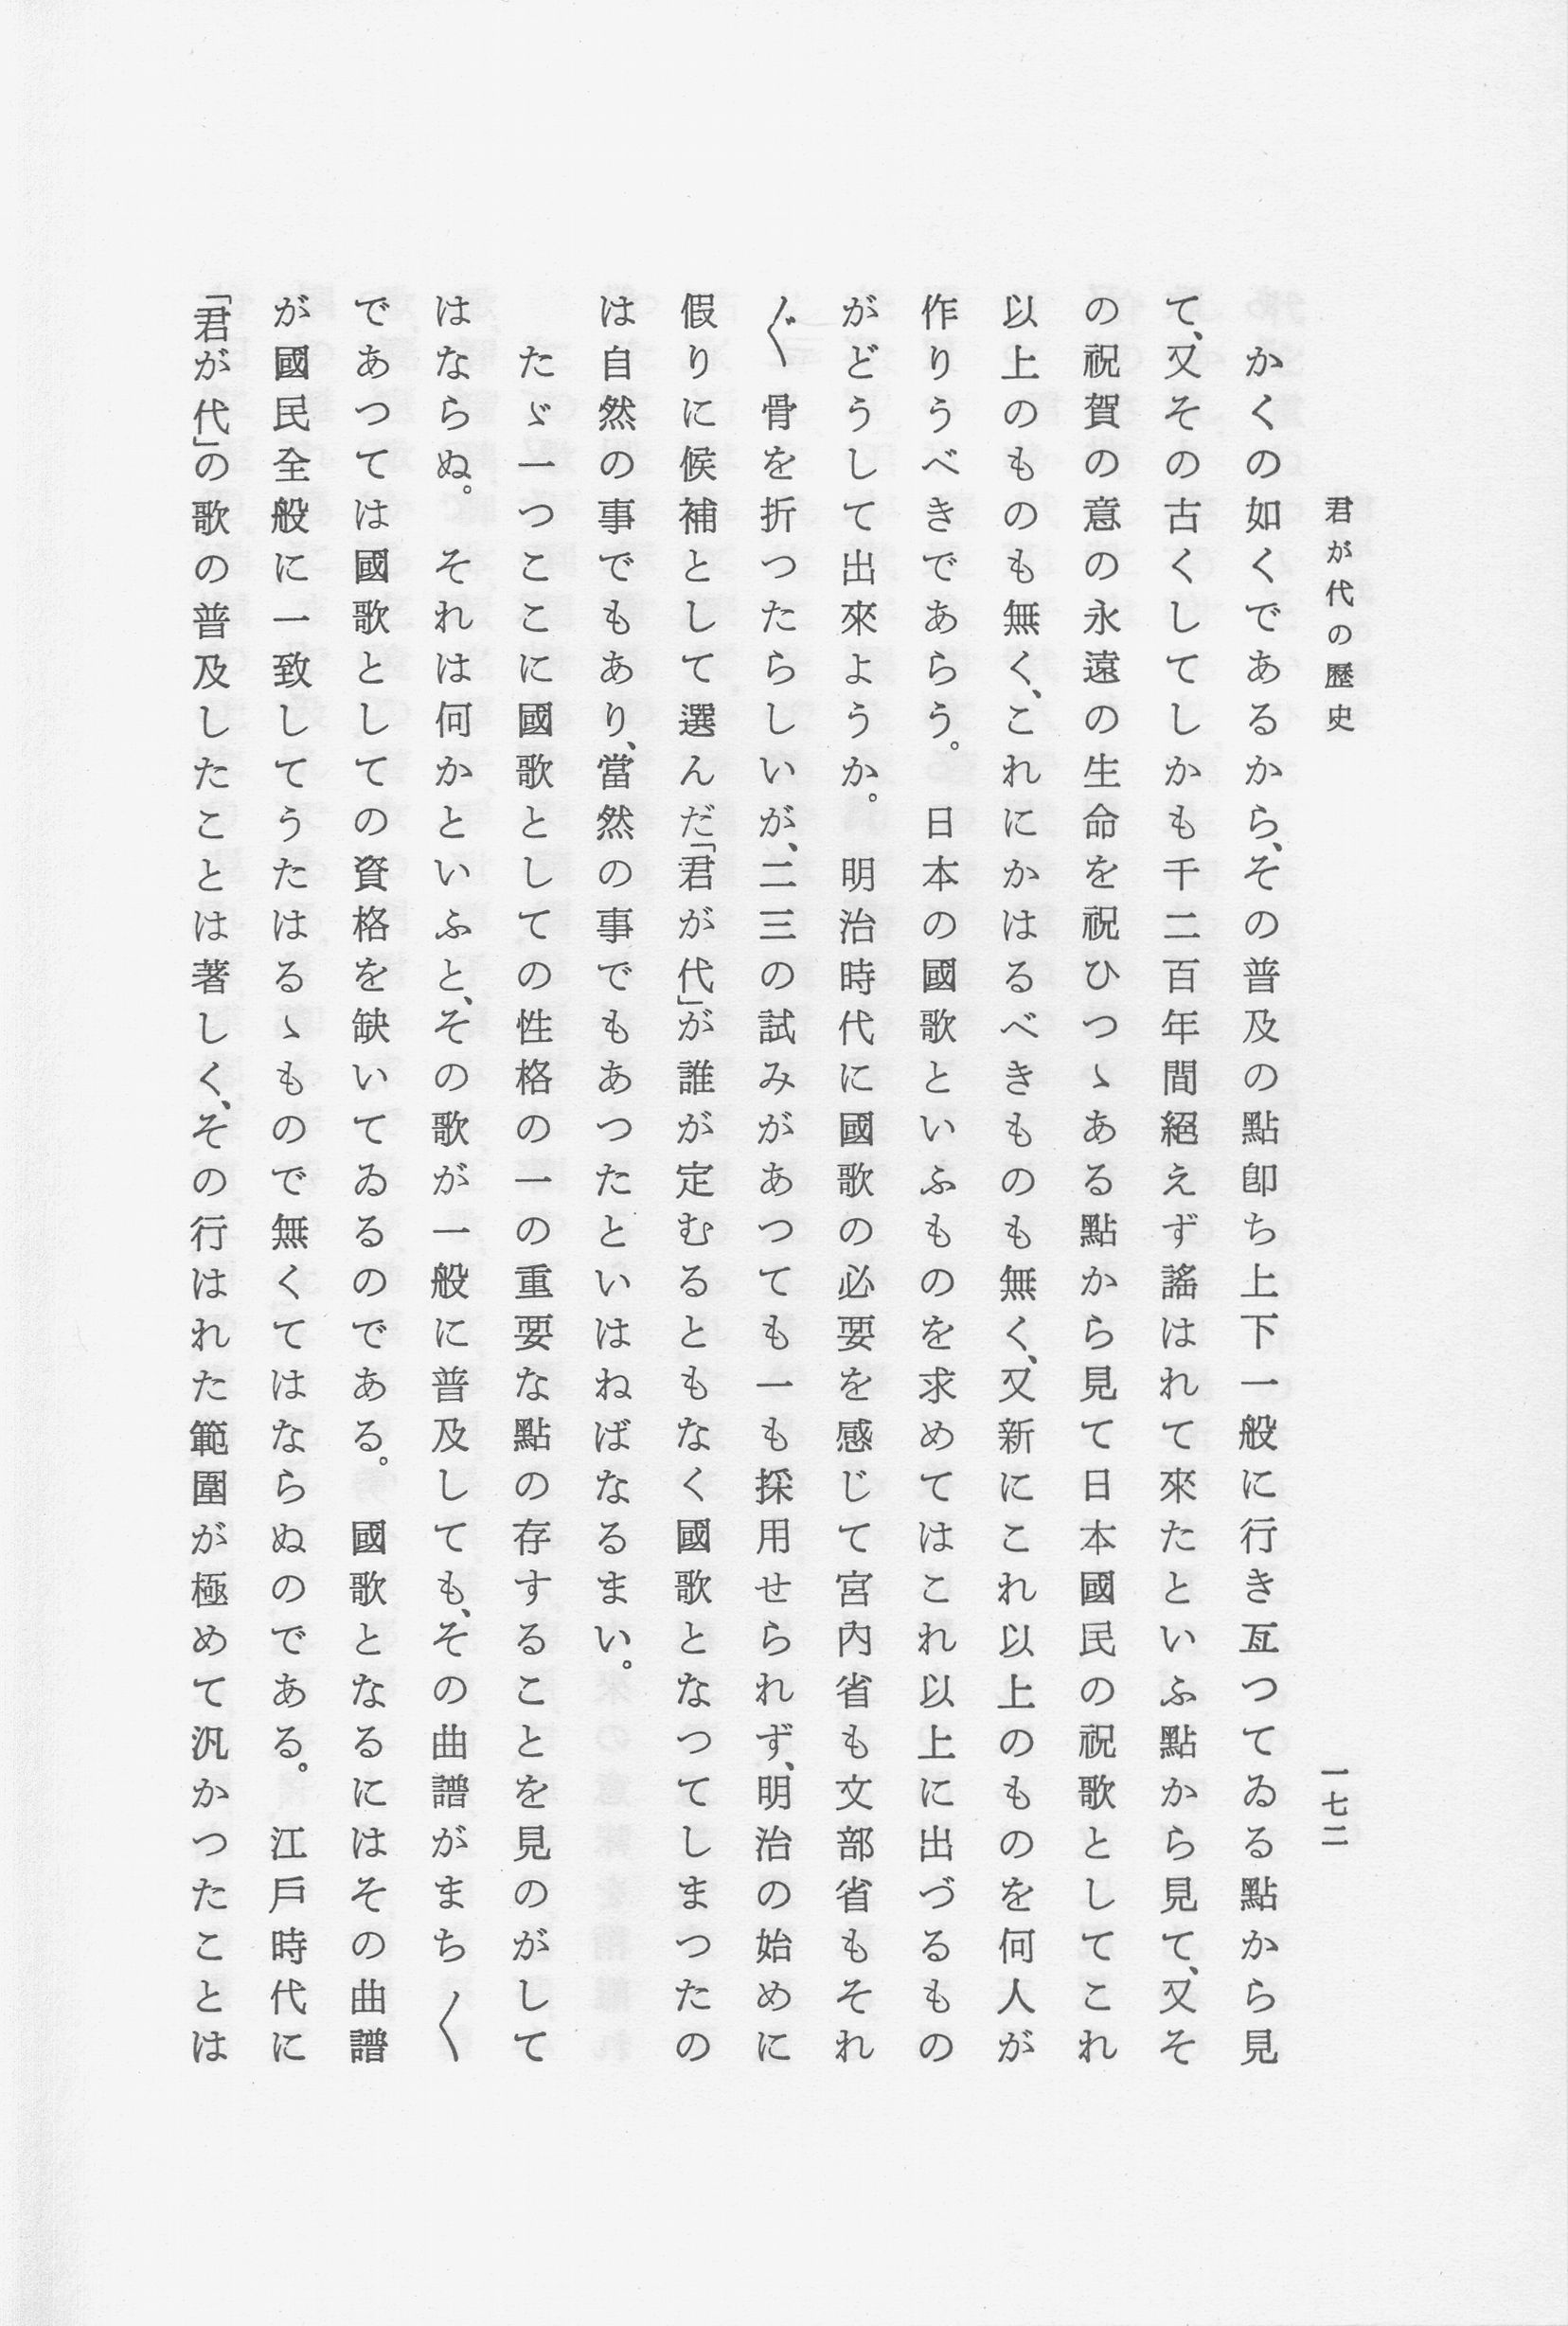 君が代の歷史
一七二
かくの如くであるから、その普及の點卽ち上下一般に行き亙つてゐる點から見
て、又その古くしてしかも千二百年間絕えず謠はれて來たといふ點から見て、又そ
の祝賀の意の永遠の生命を祝ひつゝある點から見て日本國民の祝歌としてこれ
以上のものも無く、これにかはるべきものも無く、又新にこれ以上のものを何人が
作りうべきであらう。日本の國歌といふものを求めてはこれ以上に出づるもの
がどうして出來ようか。明治時代に國歌の必要を感じて宮內省も文部省もそれ
〲骨を折つたらしいが、二三の試みがあつても一も採用せられず、明治の始めに
假りに候補として選んだ「君が代」が誰が定むるともなく國歌となつてしまつたの
は自然の事でもあり、當然の事でもあつたといはねばなるまい。
たゞ一つここに國歌としての性格の一の重要な點の存することを見のがして
はならぬ。それは何かといふと、その歌が一般に普及しても、その曲譜がまち〱
であつては國歌としての資格を缺いてゐるのである。國歌となるにはその曲譜
が國民全般に一致してうたはるゝもので無くてはならぬのである。江戶時代に
「君が代」の歌の普及したことは著しく、その行はれた範圍が極めて汎かつたことは